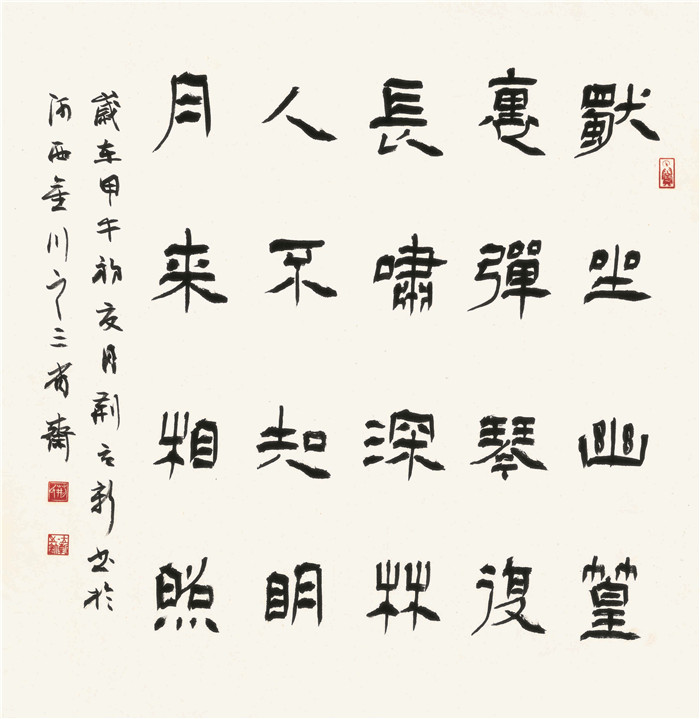 獨坐幽篁
裏彈琴復
長嘯深林
人不知明
月来相照
歲在甲午初夏月荆新书於
河西金川之三省齋